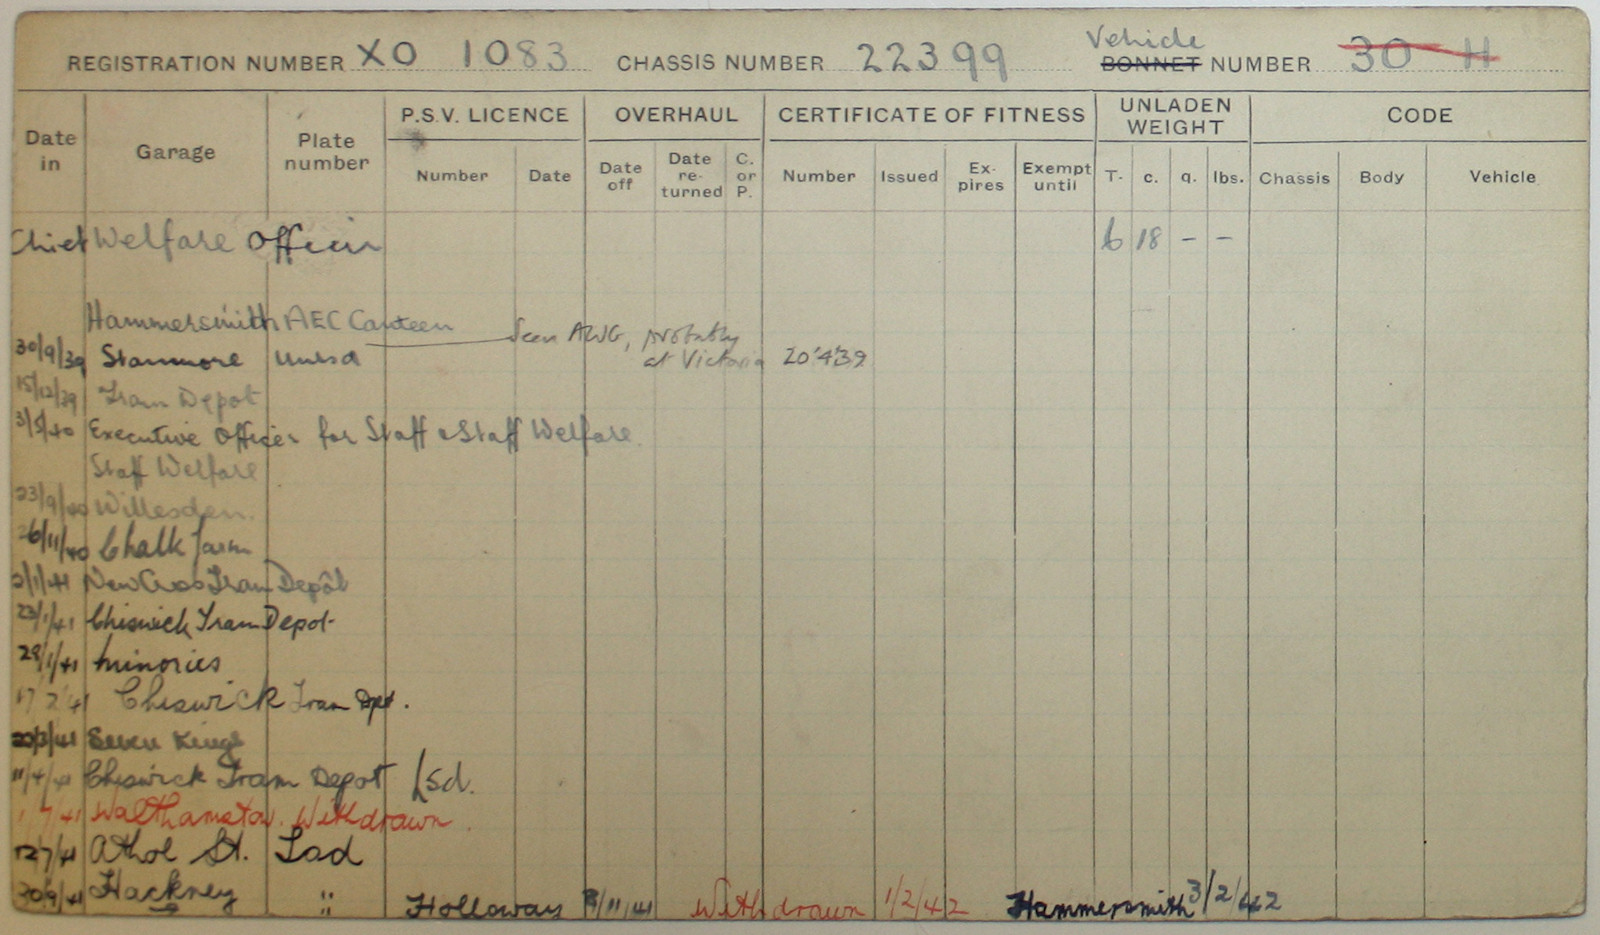 Vehicle
REGISTRATION NUMBER XO 1083 CHASSIS NUMBER 22399 BONNET NUMBER 30 H
Date in Garage Plate number P.S.V. LICENCE OVERHAUL CERTIFICATE OF FITNESS UNLADEN WEIGHT CODE
Number Date Date off Date re-turned C. or P. Number Issued Ex-pires Exempt until T. c. q. lbs. Chassis Body Vehicle
Chief Welfare Officer 6 18 - -
Hammersmith AEC Canteen Seen AWG, probably
30/9/39 Stanmore at Victoria 20'4'39
15/12/39 Tram Depot
3/5/40 Executive Officer for Staff & Staff Welfare.
Staff Welfare
23/9/40 Willesden.
26/11/40 Chalk Farm
2/1/41 New Cross Tram Depôt
23/1/41 Chiswick Tram Depot
29/1/41 Minories
17/2/41 Chiswick Tram Dpt.
20/3/41 Seven Kings
11/4/41 Chiswick Tram Depot Lsd.
1/7/41 Walthamstow. Withdrawn
12/7/41 Athol St. Lsd
20/9/41 Hackney " Holloway 8/11/41 Withdrawn 1/2/42 Hammersmith 3/2/42